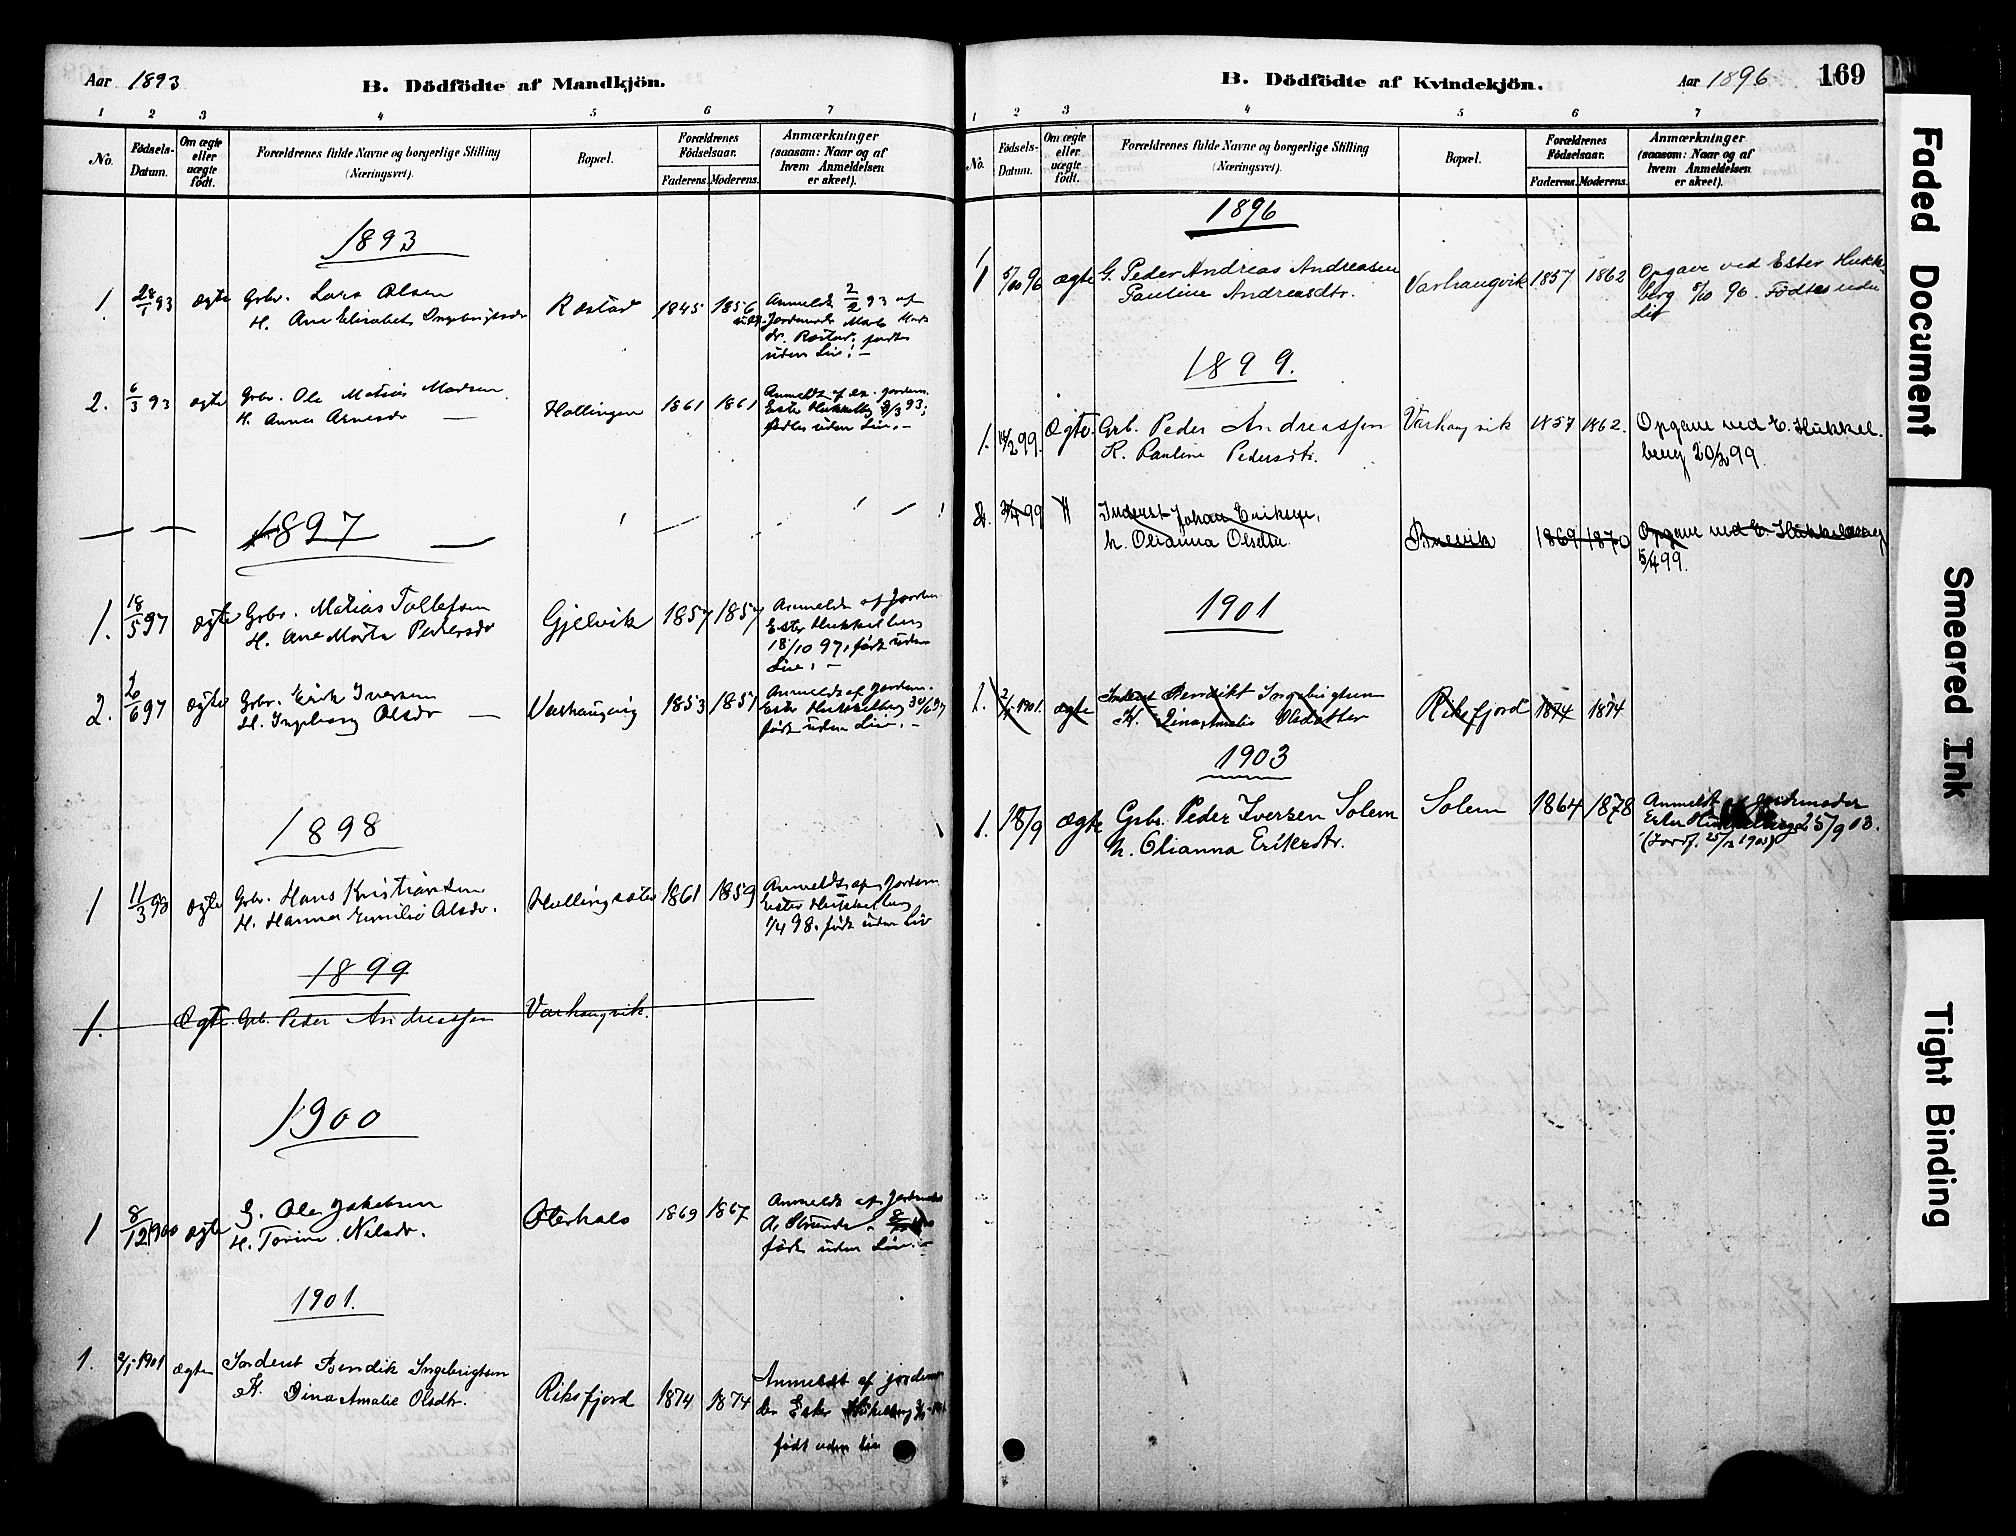 Aar 1893
B. Dödfödte af Mandkjön.
1 2 3 4 5 6 7
No.
Födsels-Datum.
Om ægte eller uægte født.
Forældrenes fulde Navne og borgerlige Stilling
(Næringsvei).
Bopæl.
Forældrenes Födselsaar.
Faderens. Moderens.
Anmærkninger
(saasom: Naar og af
hvem Anmeldelsen
er skeet).
1893
1. 28/1 93 ægte Grbr. Lars Olsen Røstad 1845 1856 Anmeldt 2/2 93 af
H. Ane Elisabet Ingebrigtsdr
Røstad, fødte
uden Liv. –
2. 6/3 93 ægte Grbr. Ole Matias Madsen Hollingen 1861 1861 Anmeldt af ex. jordem.
H. Anna Arnesdr — Ester Hukkelbg 8/3 93;
fødtes uden Liv. –
1897
1. 18/5 97 ægte Grbr. Matias Tollefsen Gjelvik 1857 1857 Anmeldt af Jordem
H. Ane Marta Pedersdr Ester Hukkelberg
18/10 97, født uden
Liv. –
2. 2/6 97 ægte Grbr. Erik Iversen Varhaugvig 1853 1851 Anmeldt af Jordem.
H. Ingeborg Olsdr — Ester Hukkelberg 30/6 97
født uden Liv. –
1898
1 11/3 98 ægte Grbr. Hans Kristiansen Hollingsæter 1861 1859 Anmeldt af Jordem.
H. Hanna Emilie Olsdr. Ester Hukkelberg
1/4 98. født uden Liv
1899
1. Ægte. Grb. Peder Andreassen Varhaugvik.
1900
1 8/12 1900 ægte G. Ole Jakobsen Oterhals 1869 1867 Anmeldt af Jordmoder
H. Torine Nilsdr.
født uden Liv. –
1901.
1. 2/1 1901 ægte Inderst Bendik Ingebrigtsen Riksfjord 1874 1874 Anmeldt af jordemo-
K. Dina Amalie Olsdtr. der Ester Hukelberg
født uden Liv
B. Dödfödte af Kvindekjön.
Aar 1896 169
1 2 3 4 5 6 7
No.
Födsels-Datum.
Om ægte eller uægte født.
Forældrenes fulde Navne og borgerlige Stilling
(Næringsvei).
Bopæl.
Forældrenes Födselsaar.
Faderens. Moderens.
Anmærkninger
(saasom: Naar og af
hvem Anmeldelsen
er skeet).
1896
1 5/10 96 ægte G. Peder Andreas Andreasen Varhaugvik 1857 1862 Opgave ved Ester Hukkel-
Pauline Andreasdtr. berg 5/10 96. Fødtes uden
Liv
1899.
1. 14/2 99. Ægte. Grb. Peder Andreassen Varhaugvik 1857 1862. Opgave ved E. Hukkel-
K. Pauline Pedersdtr. berg 20/2 99.
2. 3/4 99 Inderst Johan Eriksen,
h. Olianna Olsdtr. 1869 1870 Opgave ved E. Hukkelberg
5/4 99.
1901
1. 2/1 1901. ægte Inderst Bendikt Ingebrigtsen Riksfjord 1874 1874
K. Dina Amalie Olsdatter
1903
1. 18/9 Ægte Grbr. Peder Iversen Solem Solem 1864 1878 Anmeldt af Jordemoder
h. Olianna Eriksdtr. Ester Hukkelberg 25/9 03.
(Jordf. 25/12 1903)
Faded Document
Smeared Ink
Tight Binding